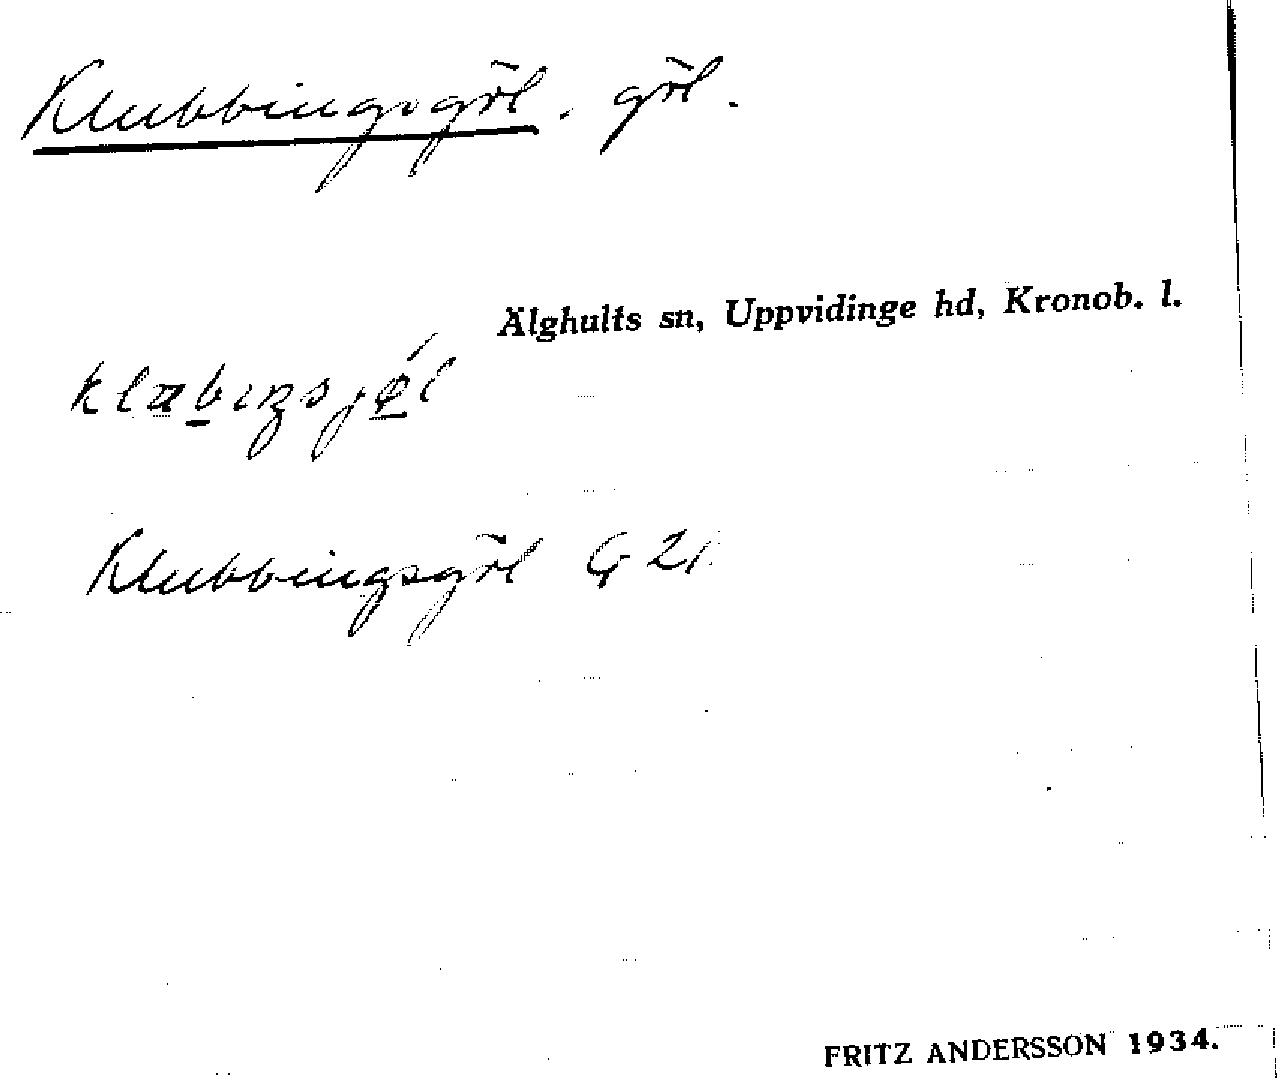 Klubbingsgöl, göl.
Älghults sn, Uppvidinge hd, Kronob. l.
Klubbingsgöl G 21
FRITZ ANDERSSON 1934.